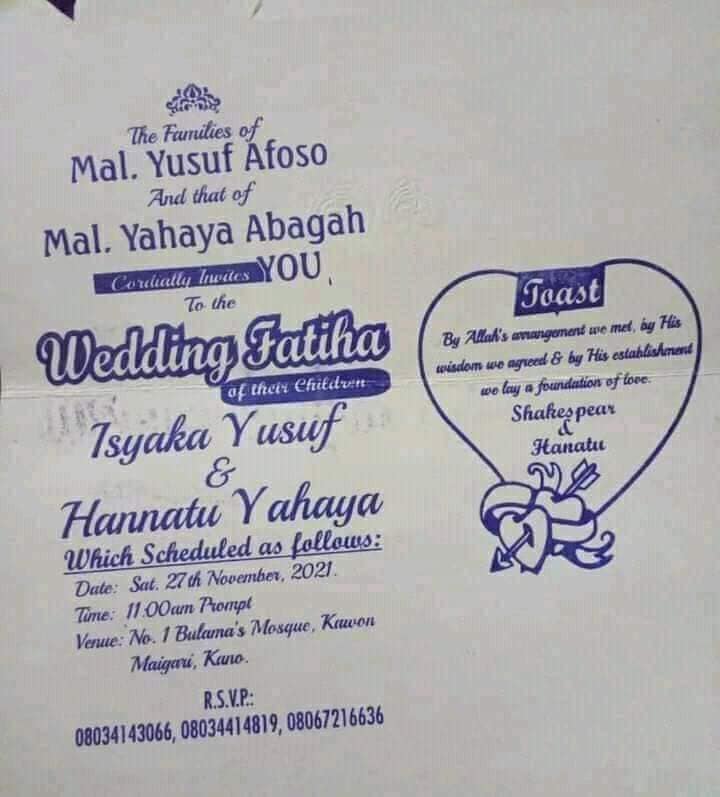 The Families of
Mal. Yusuf Afoso
And that of
Mal. Yahaya Abagah
Cordially Invites YOU
To the
Wedding Fatiha
of their Children
Isyaka Yusuf
&
Hannatu Yahaya
Which Scheduled as follows:
Date: Sat. 27th November, 2021.
Time: 11:00am Prompt
Venue: No. 1 Bulama's Mosque, Kawon
Maigari, Kano.
R.S.V.P.:
08034143066, 08034414819, 08067216636
Toast
By Allah's arrangement we met, by His
wisdom we agreed & by His establishment
we lay a foundation of love.
Shakespear
&
Hanatu